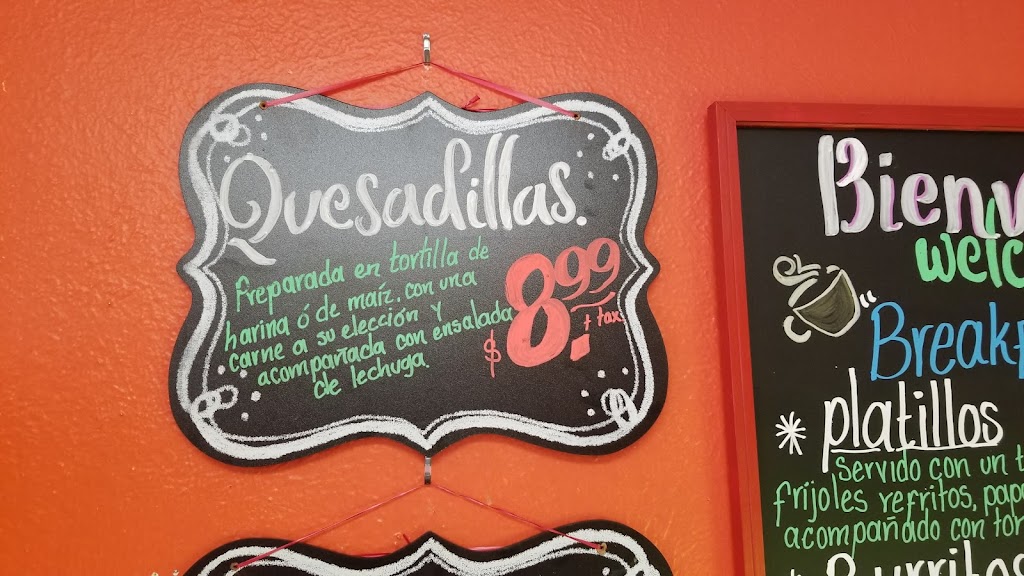 Quesadillas.
Preparada en tortilla de
harina ó de maíz. con una
carne a su elección y
acompañada con ensalada
de lechuga.
$8.99
+ tax
Bienv
welc
Breakf
* platillos
servido con un t
frijoles refritos, papa
acompañado con tor
Burritos